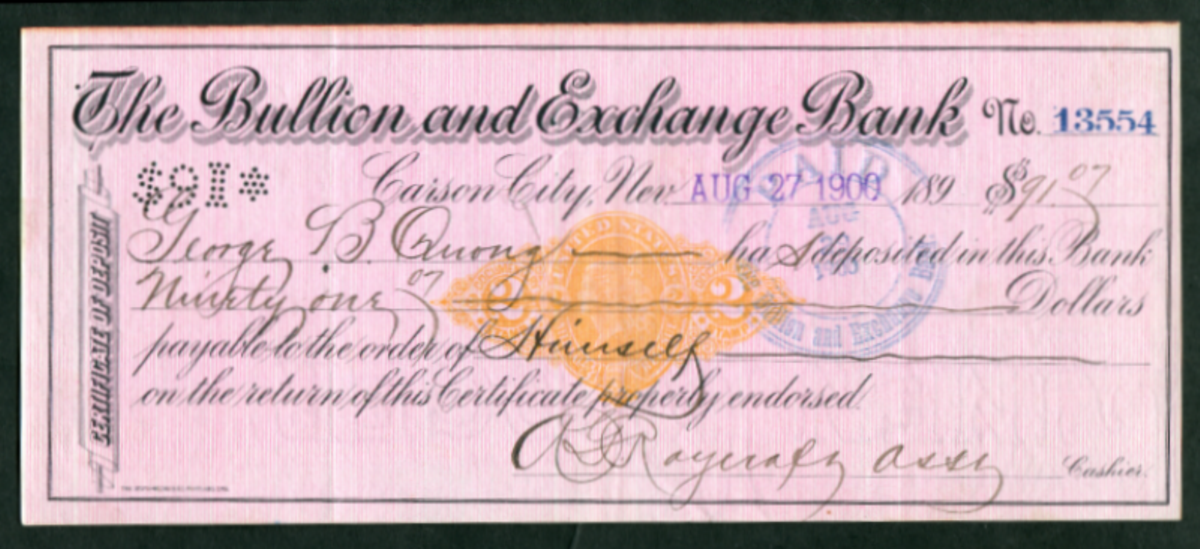 The Bullion and Exchange Bank No. 13554
$91*
Carson City, Nev. AUG 27 1900 189 $91.07
George B. Quong has deposited in this Bank
Ninety one 07 Dollars
payable to the order of Himself
on the return of this Certificate properly endorsed.
Asst Cashier.
CERTIFICATE OF DEPOSIT
PAID
AUG
and Exchange
UNITED STATES
2 2